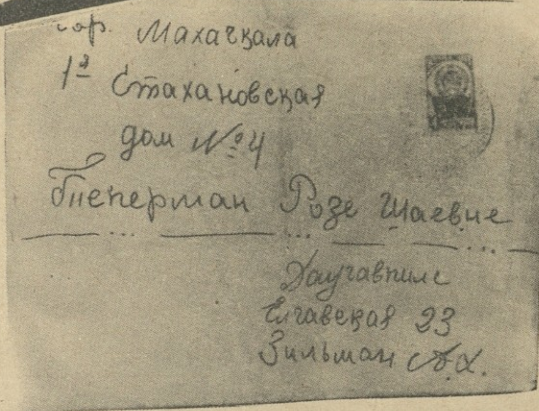 гор. Махачкала
1я Стахановская
дом № 4
Пекерман Розе Шаевне
Даугавпилс
Елгавская 23
Зильман А.Х.